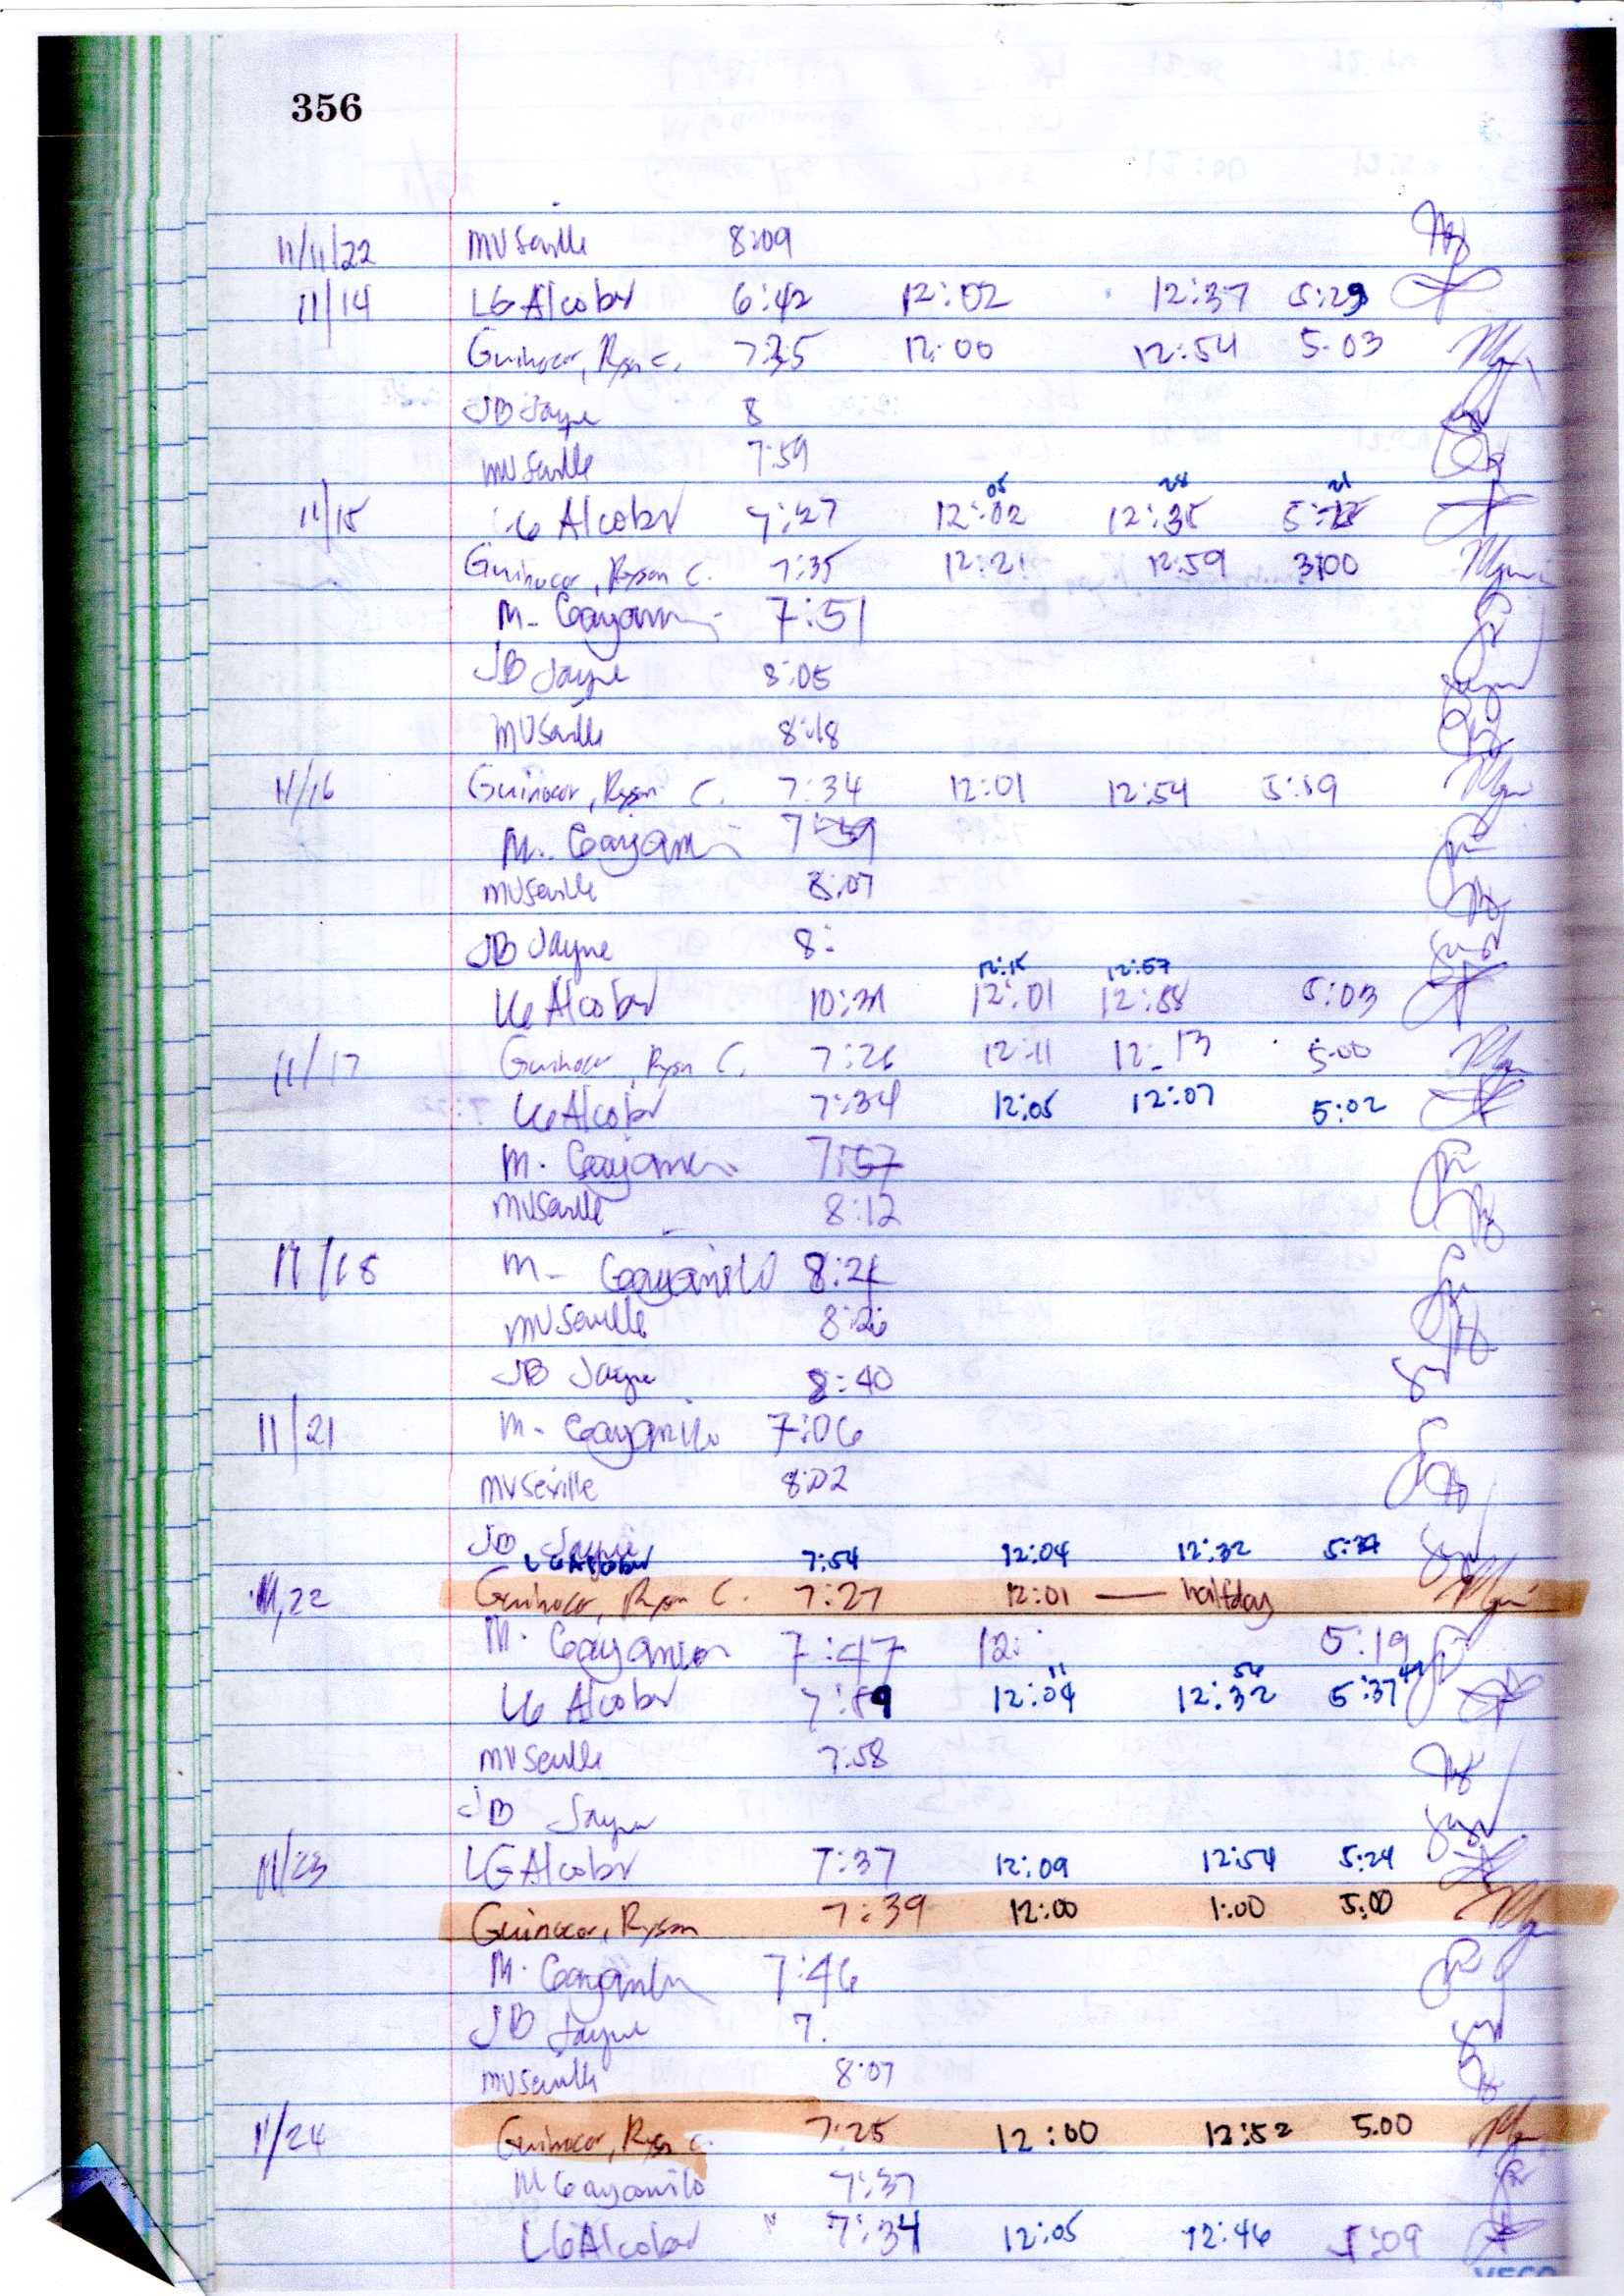 356
11/11/22 MVSeville 8:09
11/14 LG Alcober 6:42 12:02 12:37 5:29
Guinocor, Ryson C. 7:35 12:00 12:54 5:03
JB Jayne 8
MVSeville 7:59
05 28 21
11/15 LG Alcober 7:27 12:02 12:35
Guinocor, Ryson C. 7:35 12:21 12:59 3:00
M. Gayanilo 7:51
JB Jayne 8:05
MVSeville 8:18
11/16 Guinocor, Ryson C. 7:34 12:01 12:54 5:19
M. Gayanilo 7:59
MVSeville 8:07
JB Jayne 8:
12:15 12:57
LG Alcober 10:31 12:01 12:58 5:03
11/17 Guinocor, Ryson C. 7:26 12:11 12:13 5:00
LG Alcober 7:34 12:05 12:07 5:02
M. Gayanilo 7:57
MVSeville 8:12
11/18 M. Gayanilo 8:21
MVSeville
JB Jayne 8:40
11/21 M. Gayanilo 7:06
MVSeville 8:02
JB Jayne
LG Alcober 7:54 12:04 12:32
11/22 Guinocor, Ryson C. 7:27 12:01 — halfday
M. Gayanilo 7:47 12: 5:19
11 54 49
LG Alcober 7:59 12:04 12:32 5:37
MVSeville 7:58
JB Jayne
11/23 LG Alcober 7:37 12:09 12:54 5:24
Guinocor, Ryson 7:39 12:00 1:00 5:00
M. Gayanilo 7:46
JB Jayne 7.
MVSeville 8:07
11/24 Guinocor, Ryson C. 7:25 12:00 12:52 5.00
M Gayanilo 7:37
LG Alcober 7:34 12:05 12:46 5:09